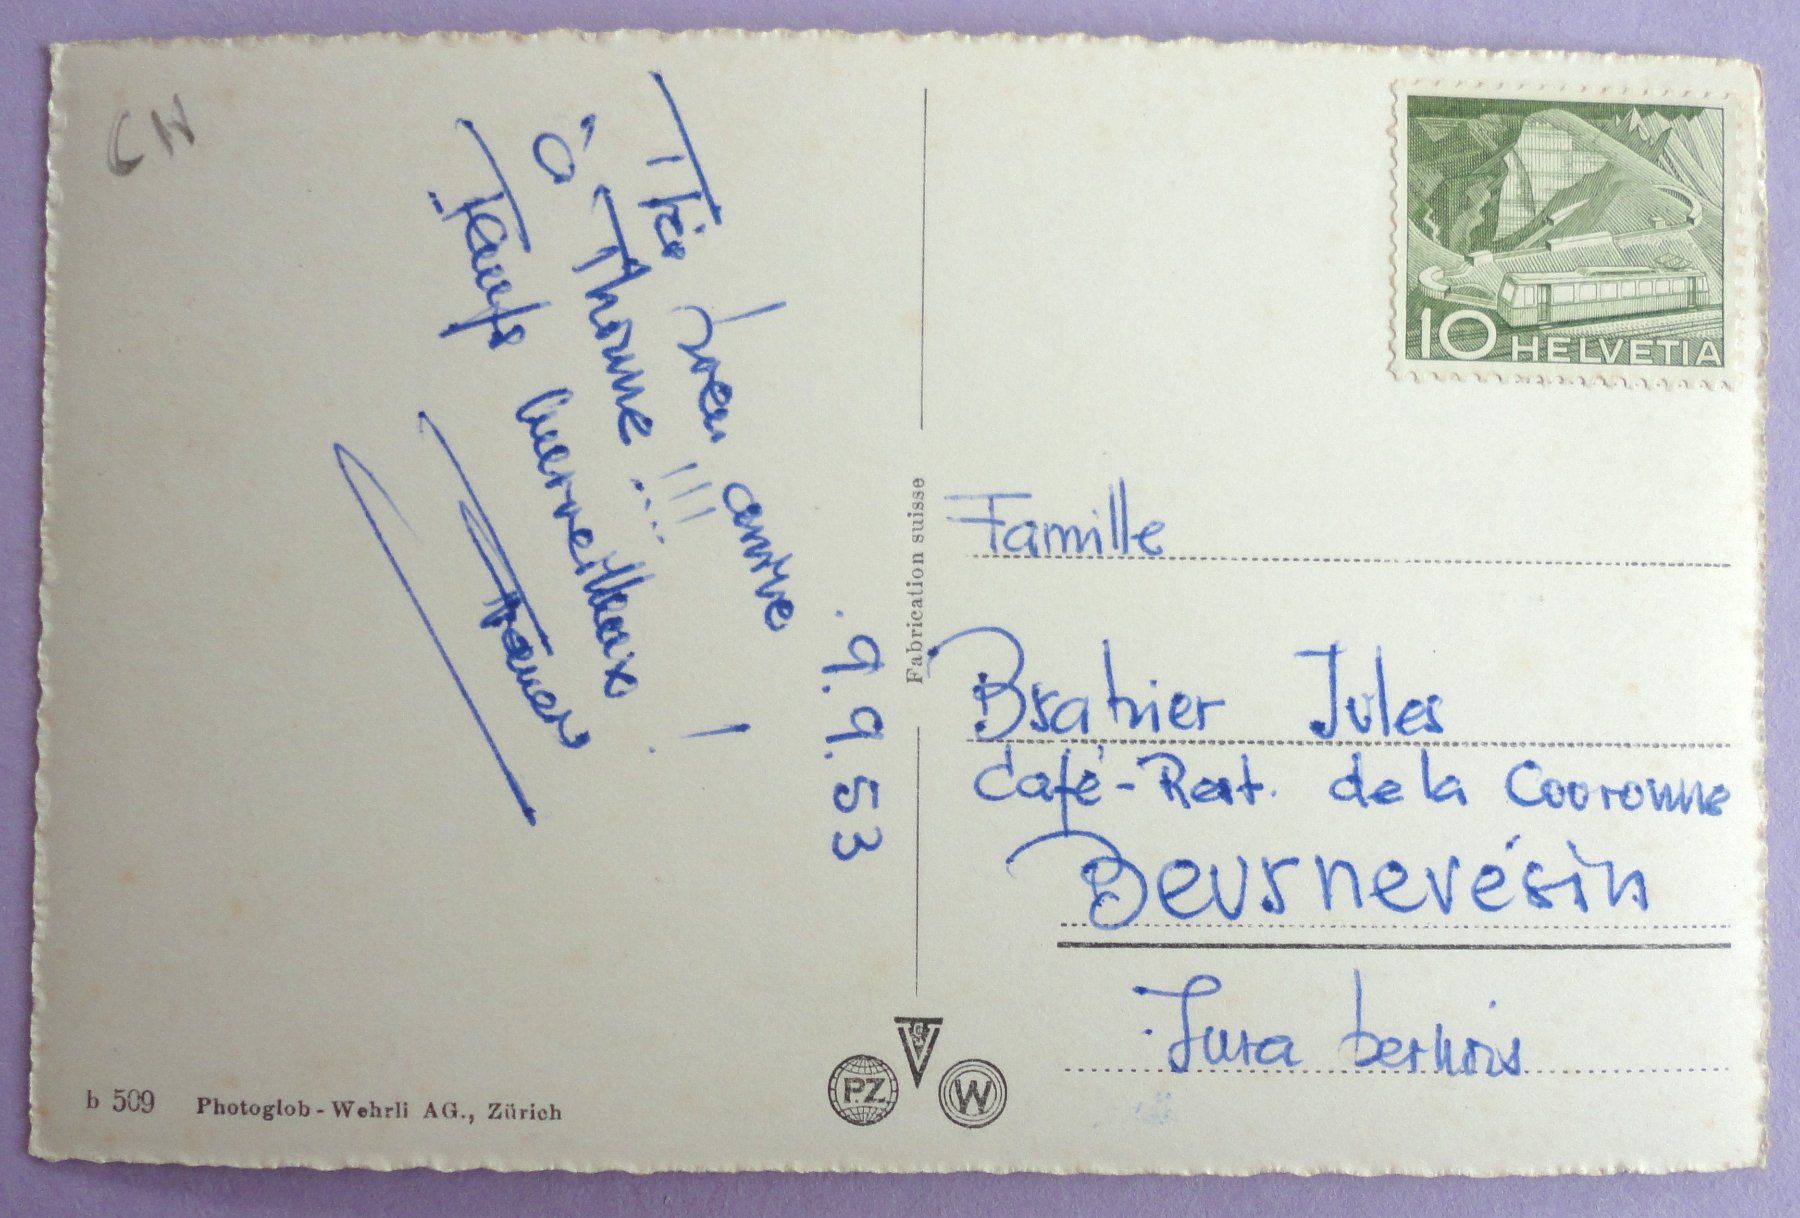 CH
Très bien arrivé
à Thoune ... !!!
Temps merveilleux !
9.9.53
Fabrication suisse
10 HELVETIA
Famille
Brahier Jules
Café-Rest. de la Couronne
Beurnevésin
Jura bernois
b 509 Photoglob-Wehrli AG., Zürich
P.Z.
W